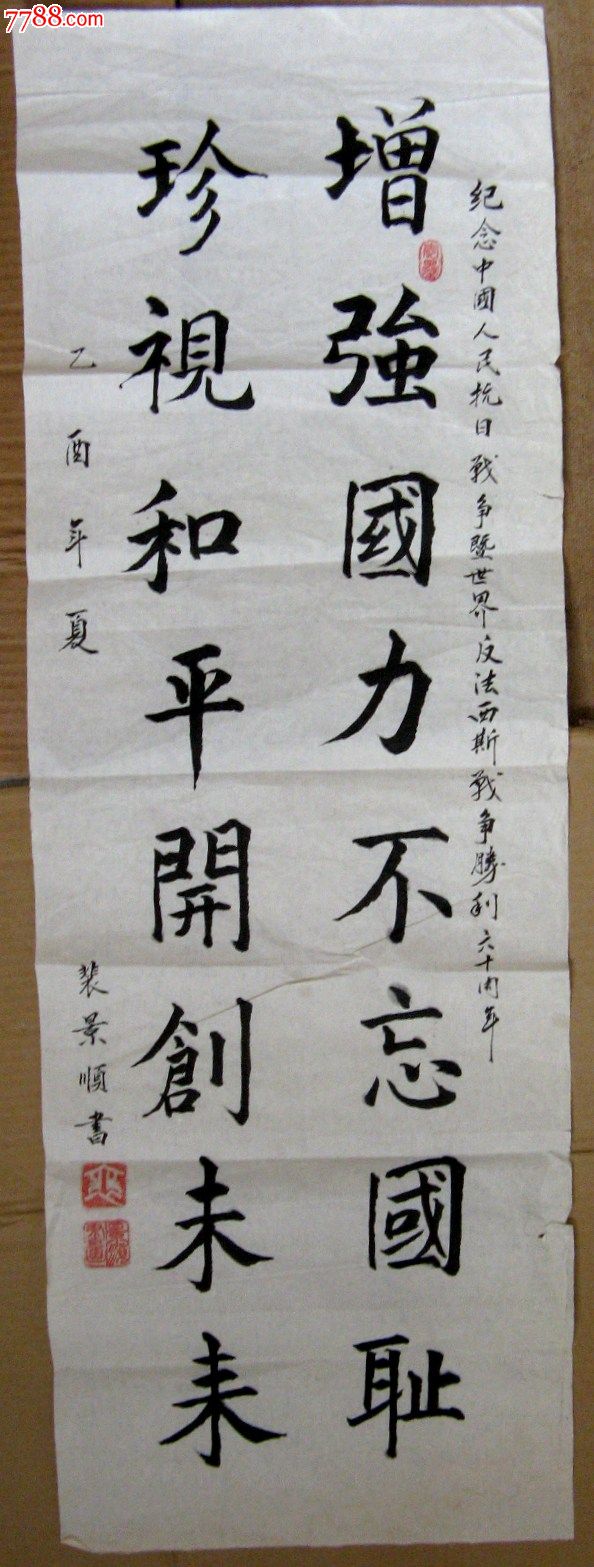 7788.com
紀念中國人民抗日戰争暨世界反法西斯戰争勝利六十周年
增強國力不忘國耻
珍視和平開創未来
乙酉年夏
裴景順書